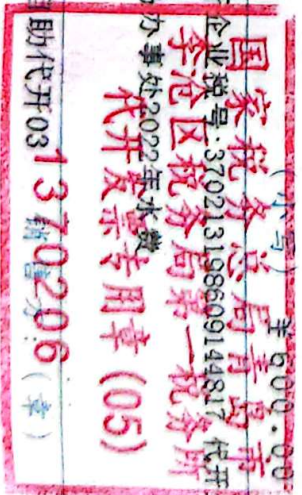 (小写) ¥600.00
国家税务总局青岛市
企业税号:370213198609144817 代开
李沧区税务局第一税务所
办事处2022年水费
代开发票专用章(05)
助代开03
1370206
销售方:(章)